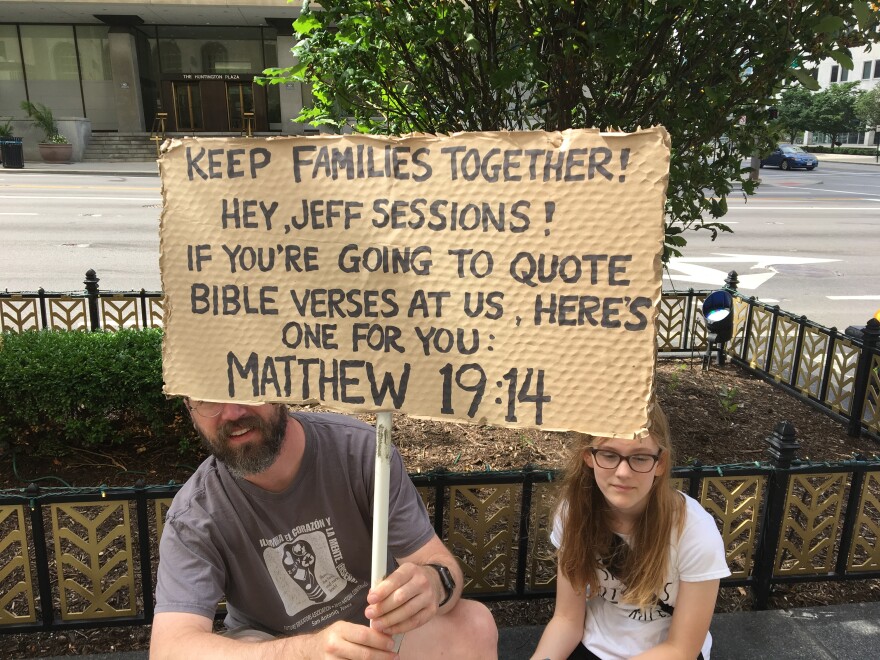 THE HUNTINGTON PLAZA
KEEP FAMILIES TOGETHER!
HEY, JEFF SESSIONS!
IF YOU'RE GOING TO QUOTE
BIBLE VERSES AT US, HERE'S
ONE FOR YOU:
MATTHEW 19:14
EL CORAZÓN Y
LA MENTE
San Antonio, Texas